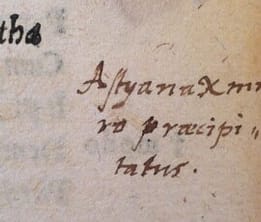 thæ
Astyanax mu
ro præcipi„
tatus.